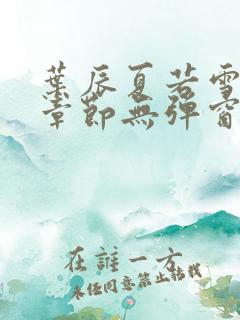 葉辰夏若雪
章節無彈窗
在誰一方
未經同意禁止轉載